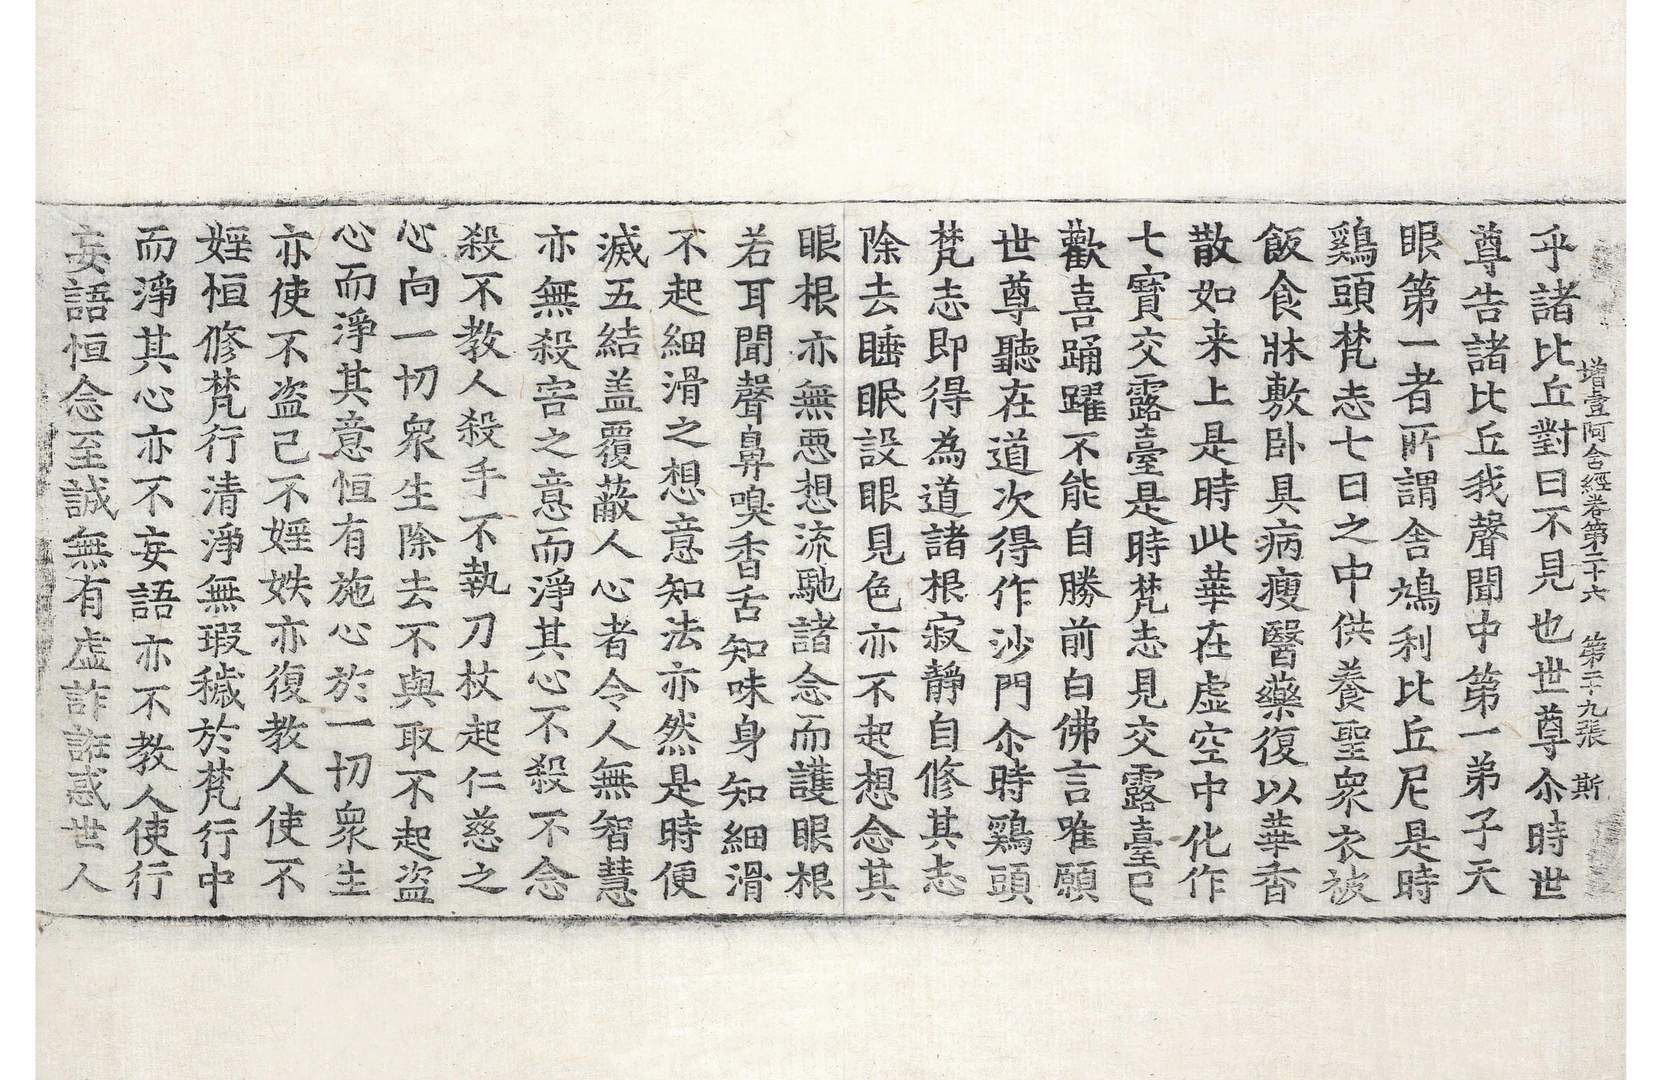 增壹阿含經卷第三十六 第二十九張 斯
乎諸比丘對曰不見也世尊尒時世
尊告諸比丘我聲聞中第一弟子天
眼第一者所謂舍鳩利比丘尼是時
鷄頭梵志七日之中供養聖衆衣被
飯食牀敷卧具病瘦醫藥復以華香
散如来上是時此華在虛空中化作
七寶交露臺是時梵志見交露臺已
歡喜踊躍不能自勝前白佛言唯願
世尊聽在道次得作沙門尒時鷄頭
梵志即得為道諸根寂靜自修其志
除去睡眠設眼見色亦不起想念其
眼根亦無惡想流馳諸念而護眼根
若耳聞聲鼻嗅香舌知味身知細滑
不起細滑之想意知法亦然是時便
滅五結盖覆蔽人心者令人無智慧
亦無殺害之意而淨其心不殺不念
殺不教人殺手不執刀杖起仁慈之
心向一切衆生除去不與取不起盗
心而淨其意恒有施心於一切衆生
亦使不盗己不婬妷亦復教人使不
婬恒修梵行清淨無瑕穢於梵行中
而淨其心亦不妄語亦不教人使行
妄語恒念至誠無有虛詐誑惑世人